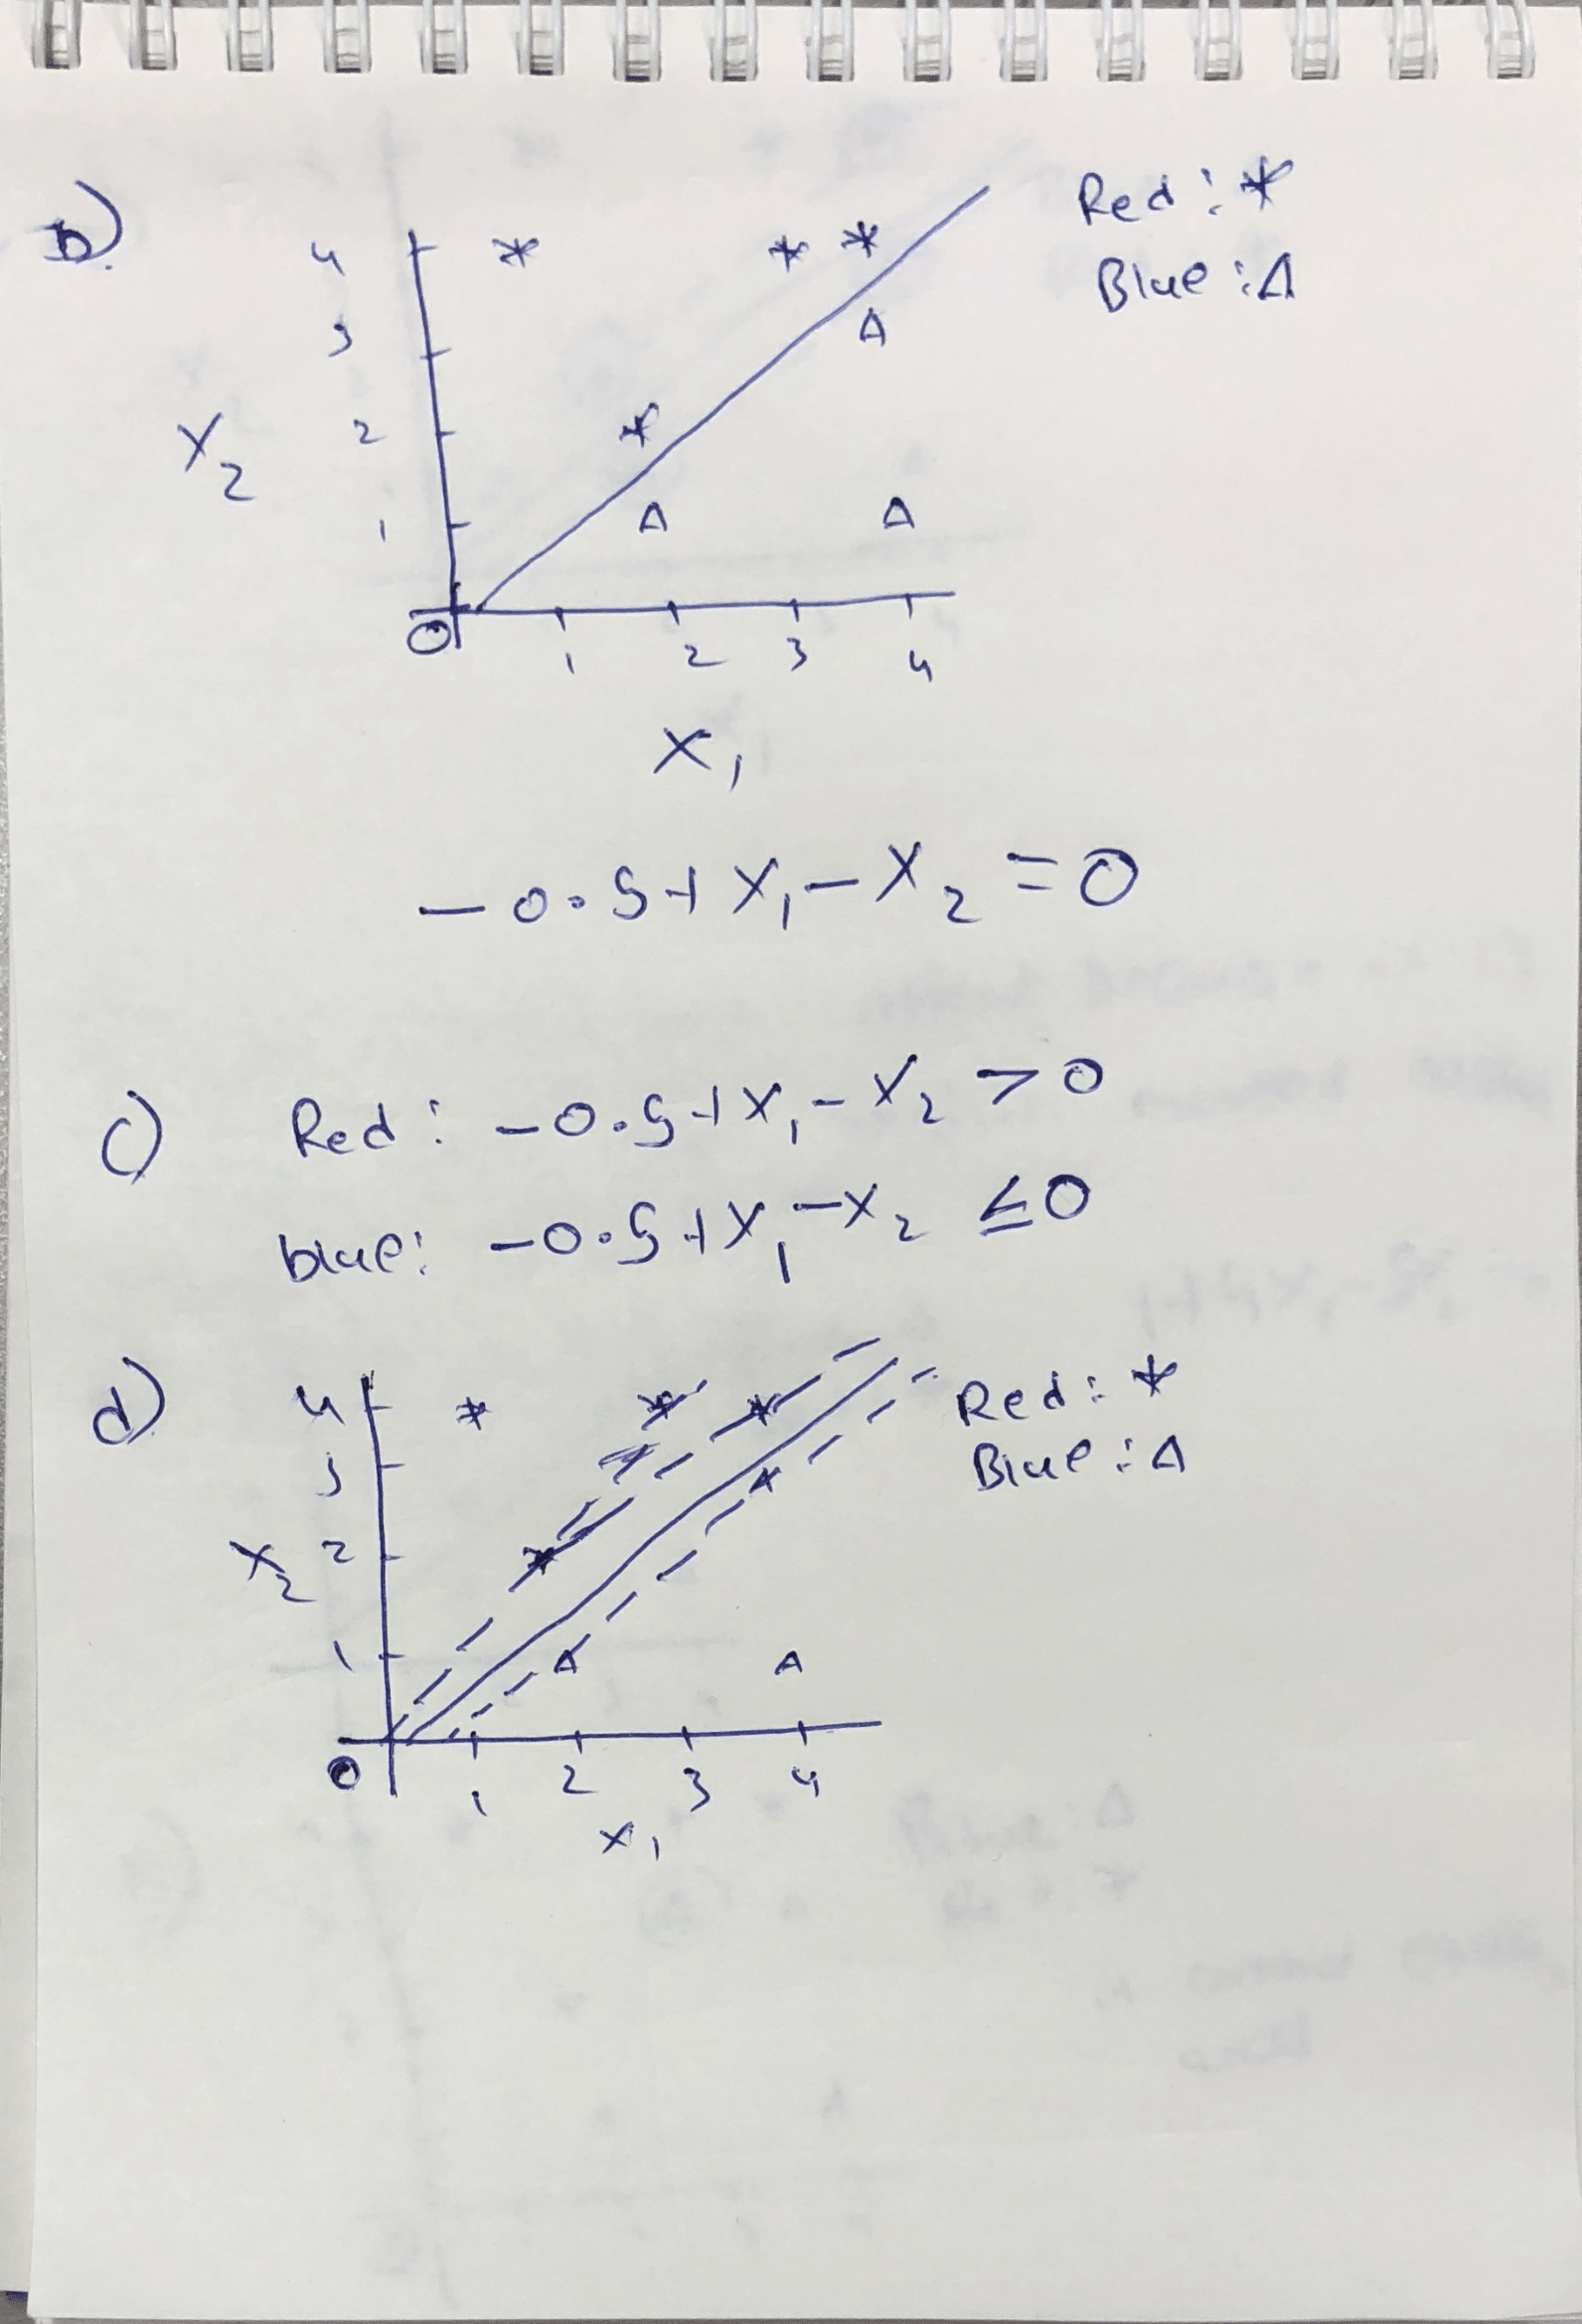 b)
Red: *
Blue: Δ
4
3
2
1
X₂
0
1 2 3 4
X₁
-0.5+X₁-X₂=0
c) Red: -0.5+X₁-X₂>0
blue: -0.5+X₁-X₂≤0
d)
Red: *
Blue: Δ
4
3
2
1
X₂
0
1 2 3 4
X₁